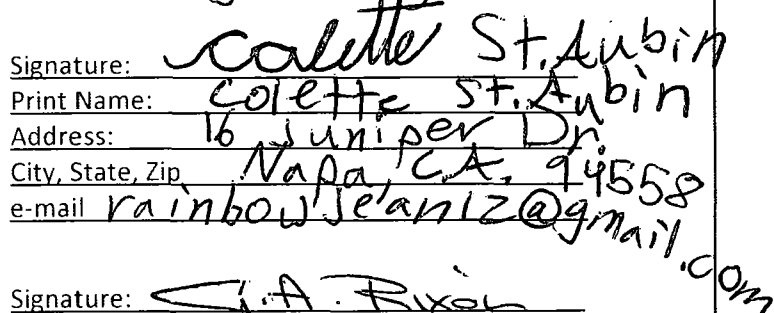 Signature: Colette St. Aubin
Print Name: Colette St. Aubin
Address: 16 Juniper Dr.
City, State, Zip Napa, CA, 94558
e-mail rainbowjeaniz@gmail.com
Signature: A. Rixon